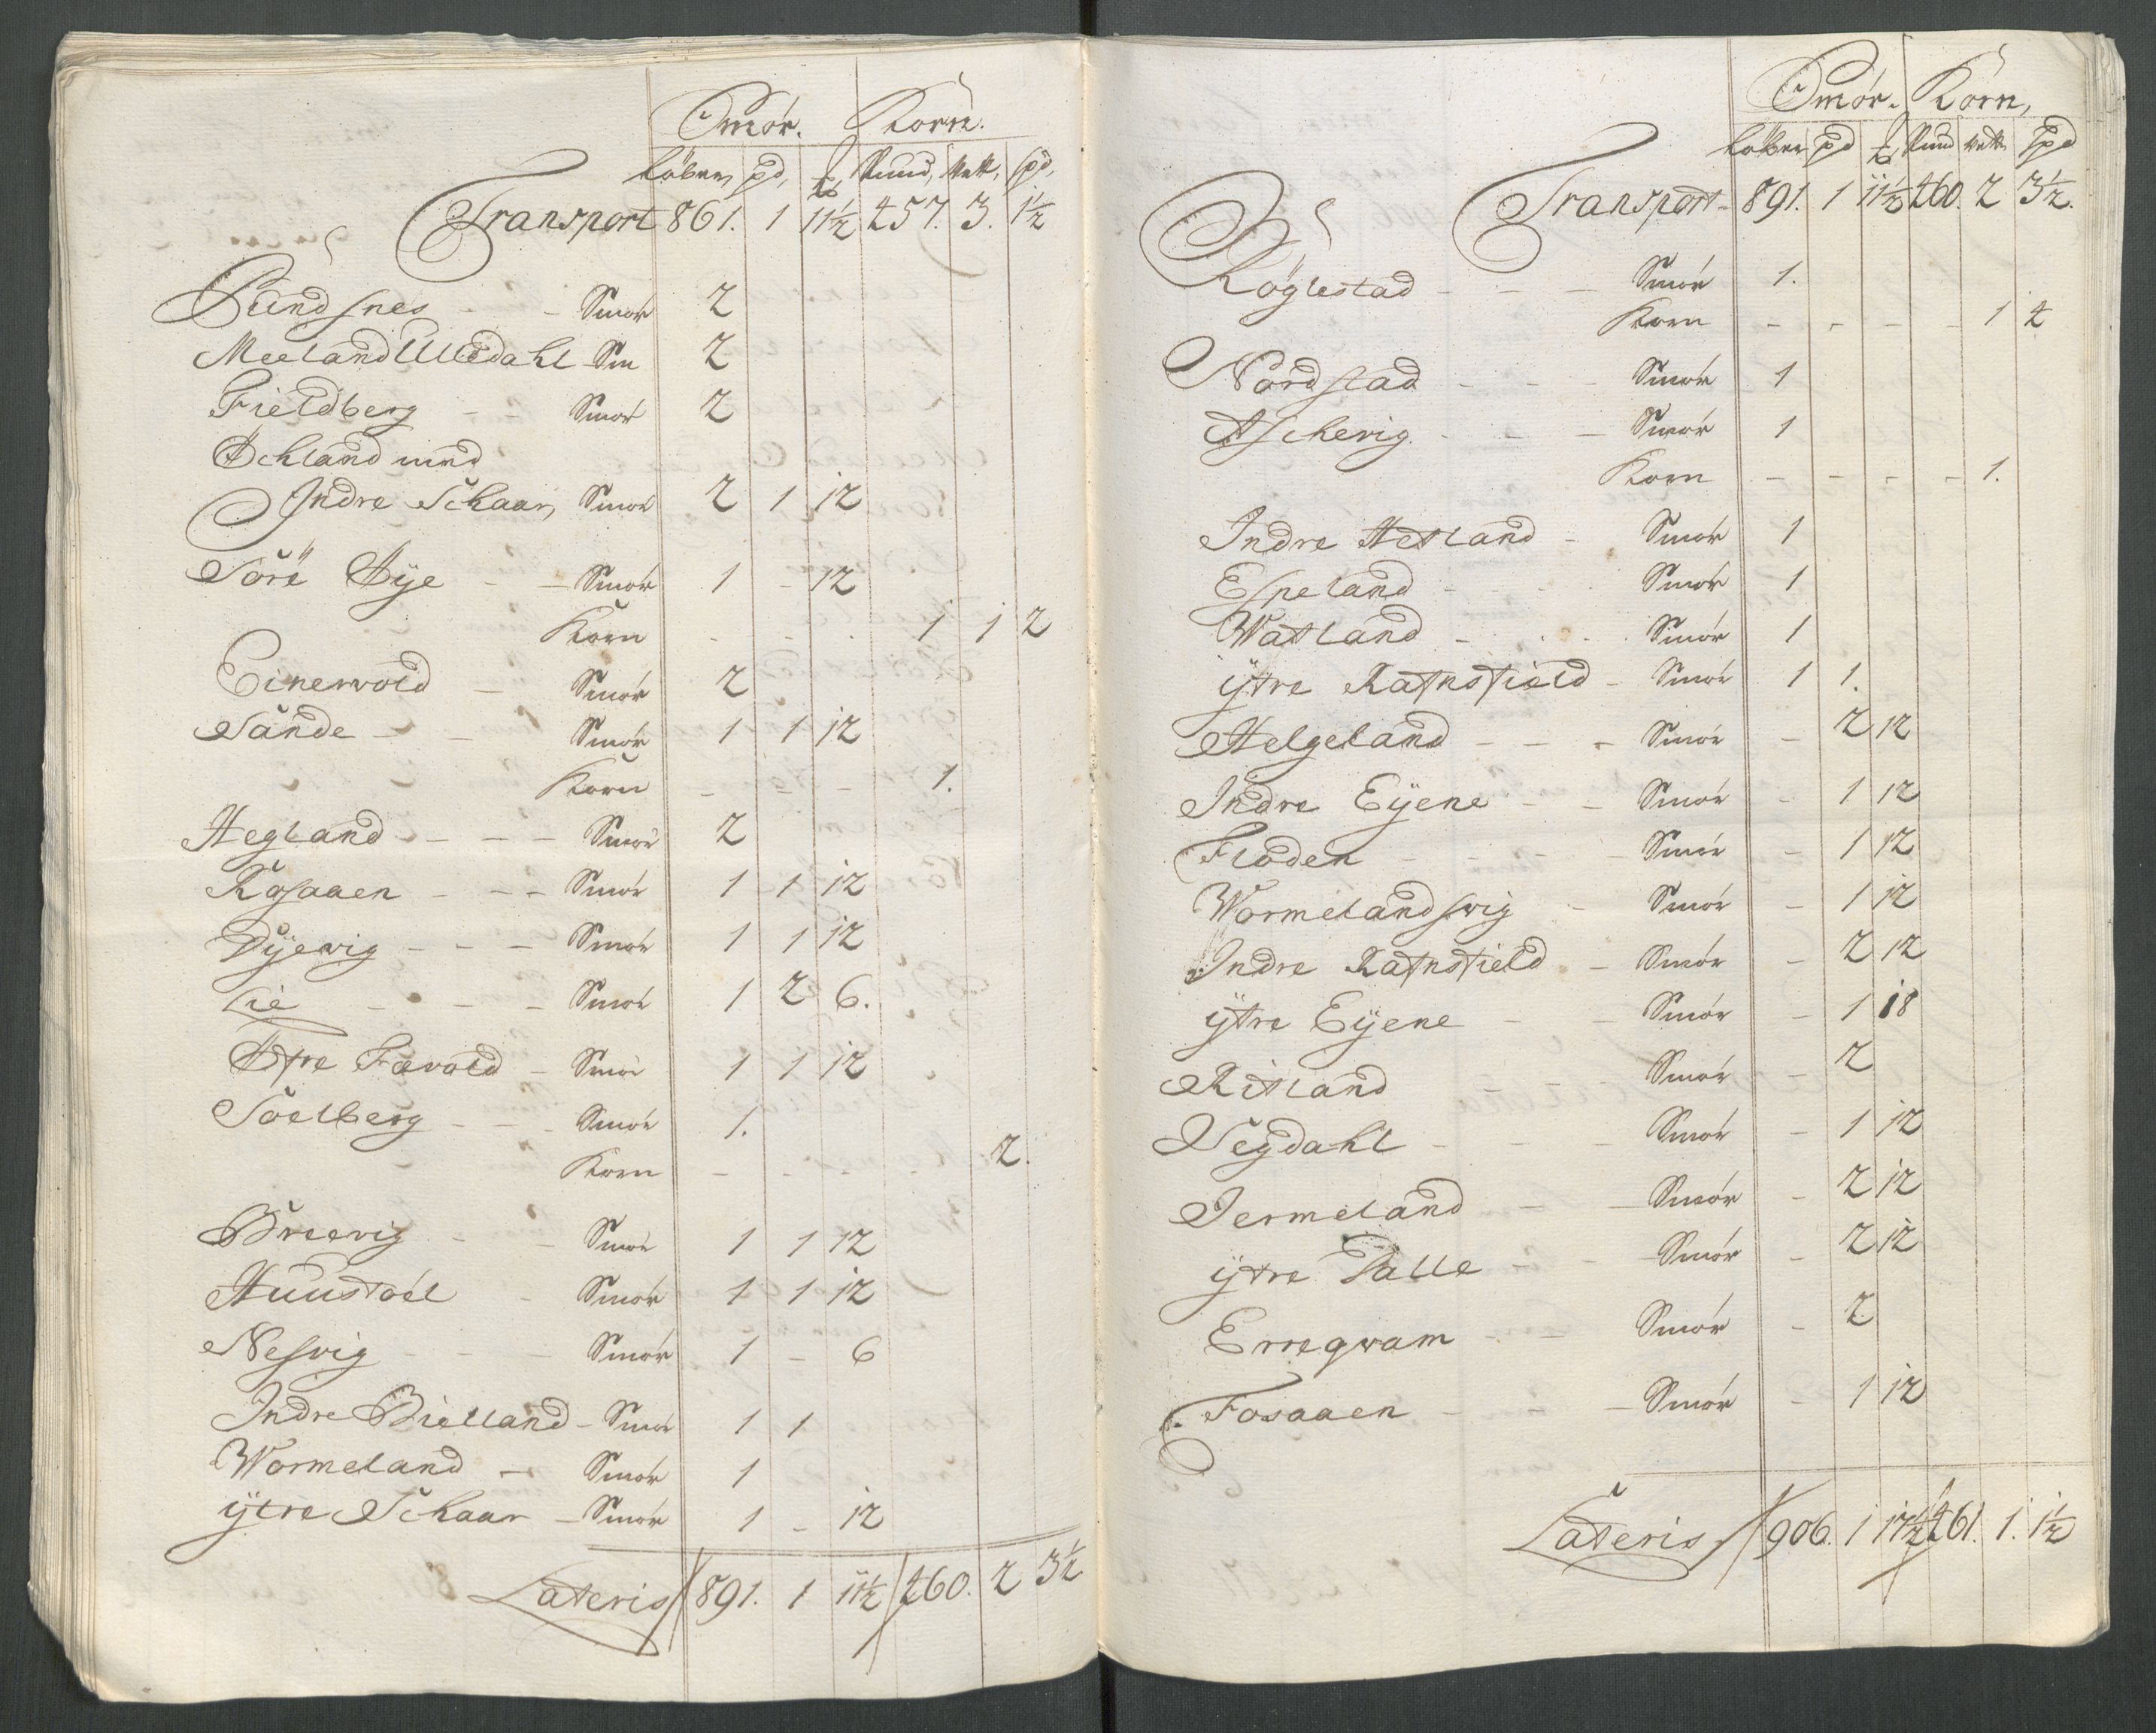 Smör. Korn.
Löber, pd, ℔, Pund, Vett, spd,
Transport 861. 1 11½ 257. 3. 1½
Sundsnes - - Smör 2
Meeland Ulledahl Sm 2
Fieldberg - - Smör 2
Øchland med
Indre Schaar, Smör 2 1 12
Sörë Øÿe - - Smör 1 - 12
Korn - - - 1 1 2
Einerwold - Smör 2
Sande - - Smör 1 1 12
Korn - - - 1.
Hegland - - - Smör 2
Kosaaen - - - Smör 1 1 12
Dÿevig - - - Smör 1 1 12
Lie - - - Smör 1 2 6.
Øfre Fævold - Smör 1 1 12
Soelberg - - - Smör 1.
Korn - - - - 2.
Breevig - - Smör 1 1 12
Huustoel - Smör 1 1 12
Nesvig - - - Smör 1 - 6
Indre Bielland - Smör 1 1
Wormeland - Smör 1
ÿtre Schaar - Smör 1 - 12
Lateris 891. 1 11½ 260. 2 3½
Smör. Korn,
Löber pd ℔ Pund vett spd
Transport - 891. 1 11½ 260. 2 3½.
Röglestad - - - Smör 1.
Korn - - - - 1 2
Nordstad - - - Smör 1
Aschevig. - - - Smör 1
Korn - - - - 1.
Indre Hetland - Smör 1
Espeland - - - Smör 1
Watland - - - Smör 1
ÿtre Rafnsfield - Smör 1 1.
Helgeland - - - Smör - 2 12
Indre Eÿene - - Smör - 1 12
Floden - - - - Smör - 1 12
Wormelandsvig - Smör - 1 12
Indre Rafnsfield - Smör - 2 12
ÿtre Eÿene - - Smör - 1 18
Ritland - - - Smör - 2
Segdahl - - - Smör - 1 12
Jermeland - - Smör - 2 12
ÿtre Talle - - - Smör - 2 12
Erreqvam - - Smör - 2.
Fosaaen - - - Smör - 1 12
Lateris 906. 1 17½ 261. 1. 1½